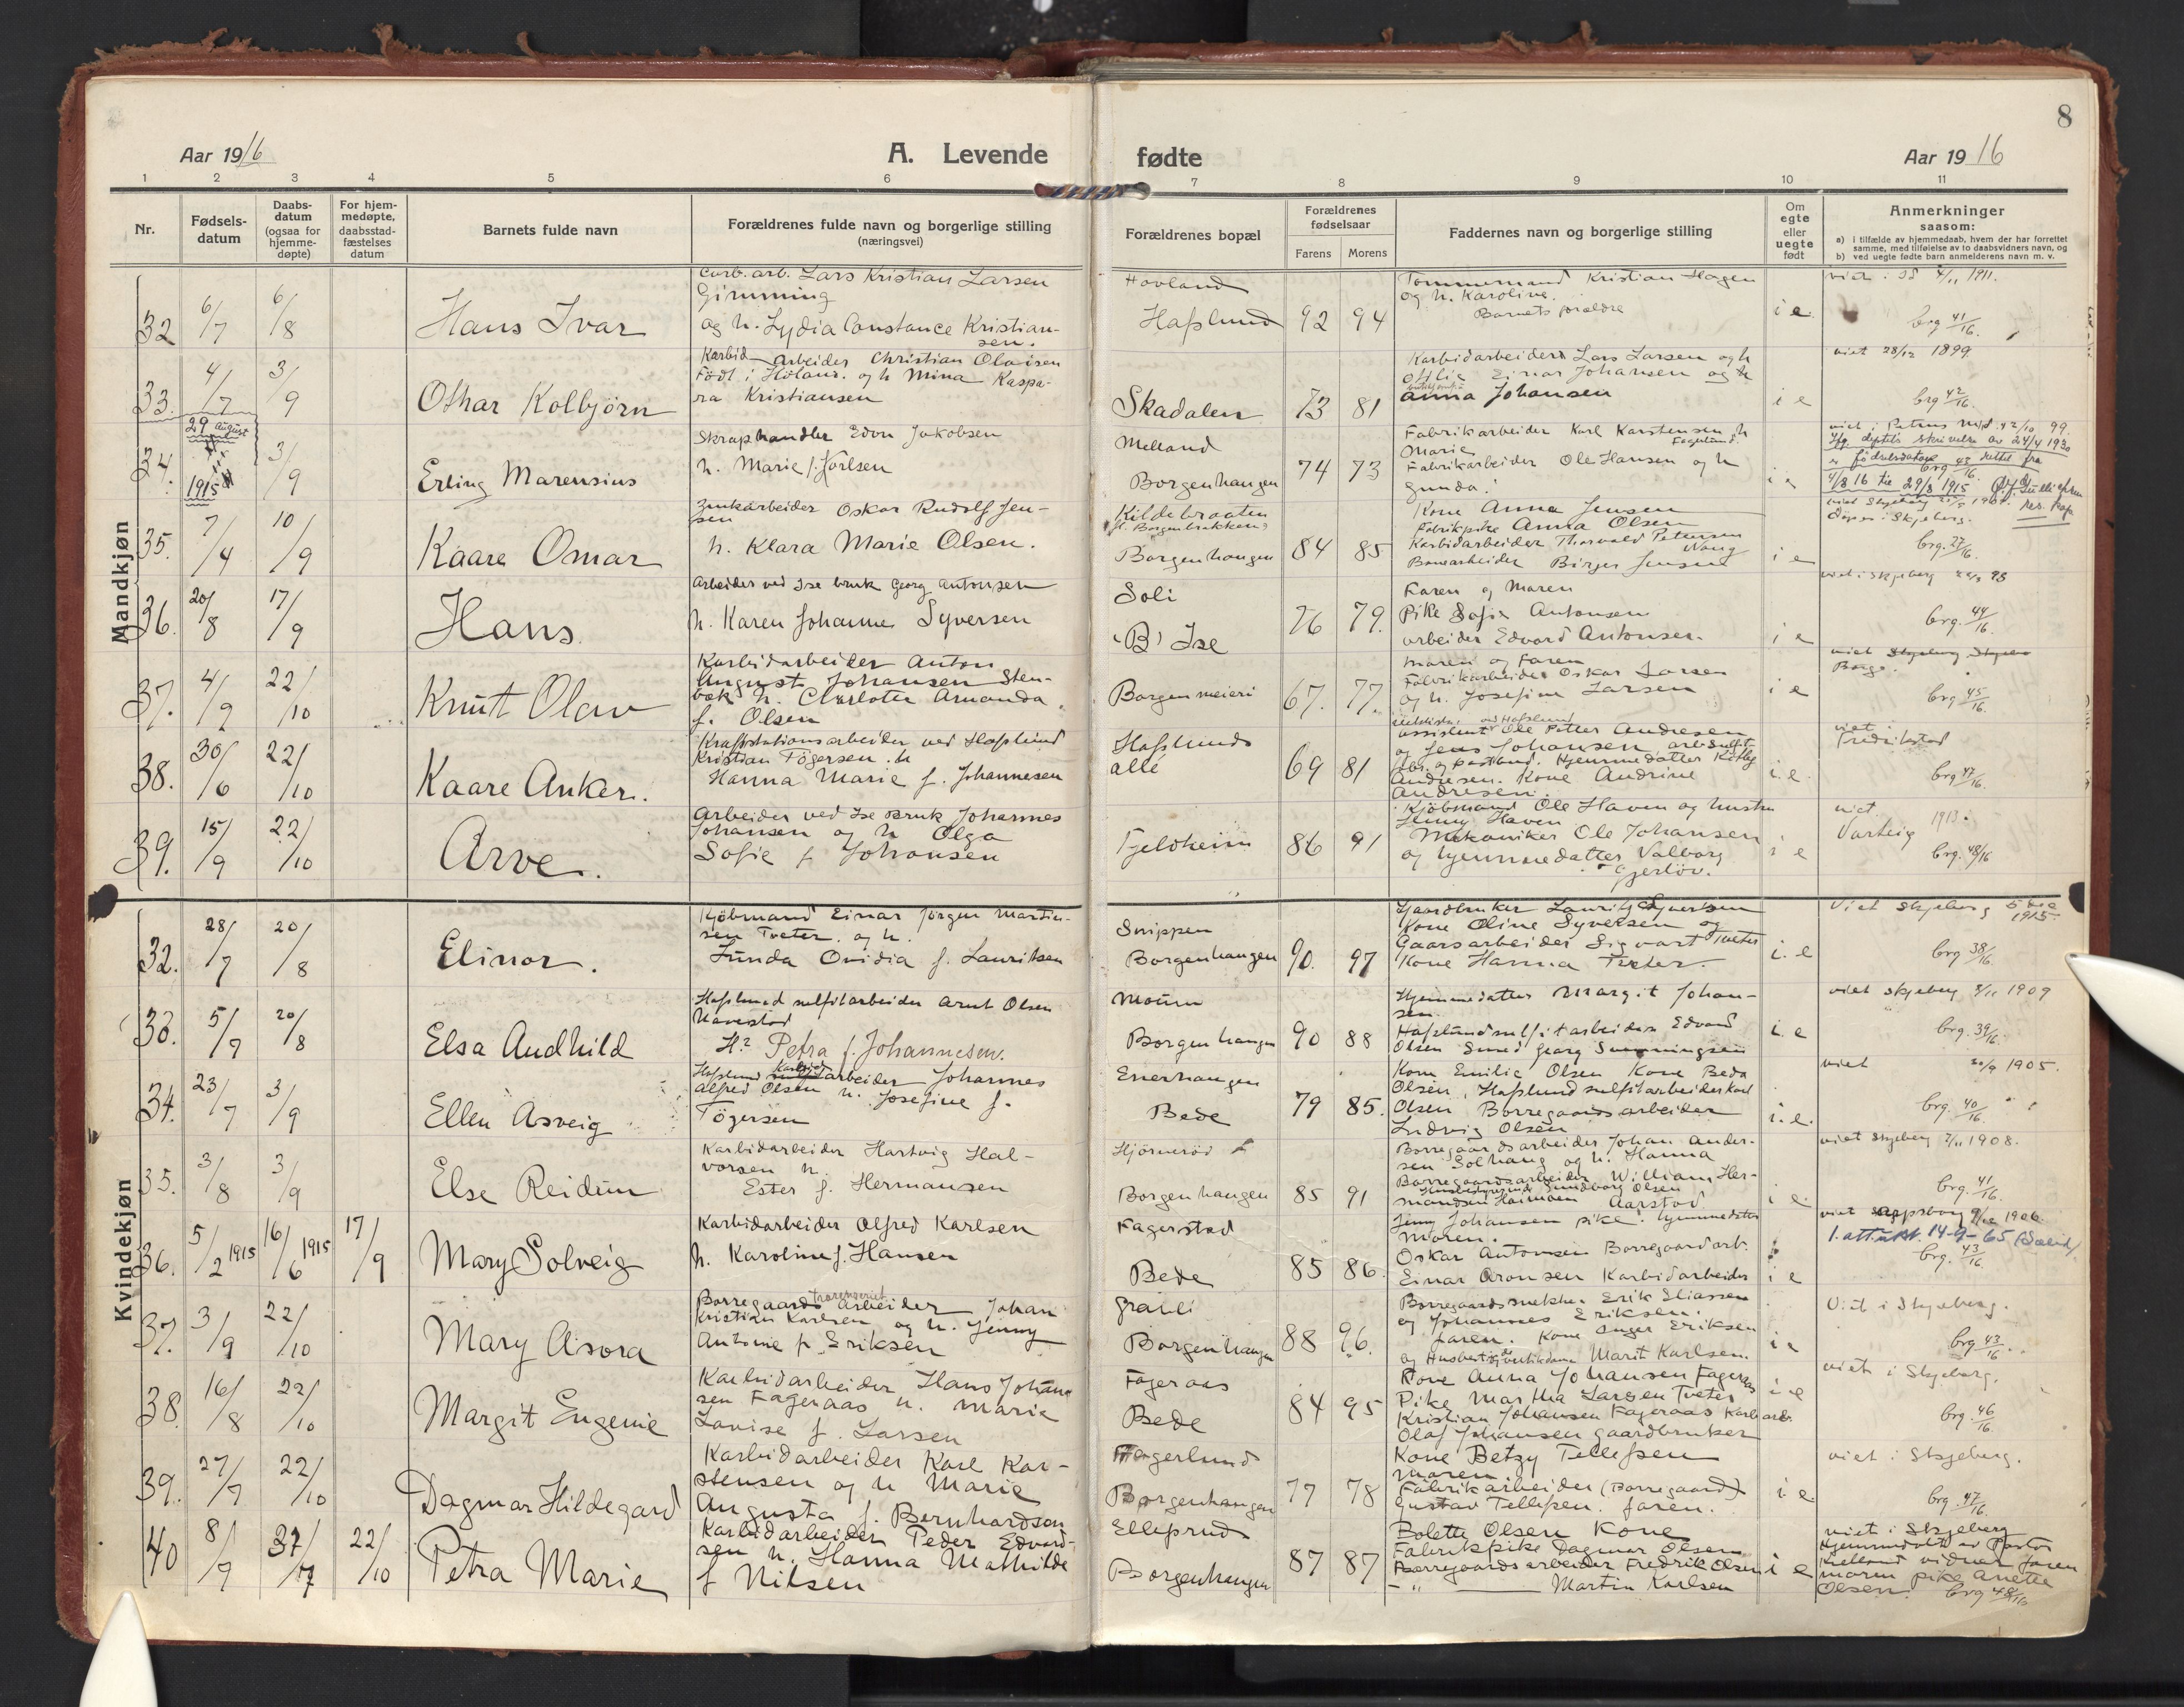 Aar 1916
A. Levende
fødte
Aar 1916
8
1 2 3 4 5 6 7 8 9 10 11
Nr.
Fødsels-
datum
Daabs-
datum
(ogsaa for
hjemme-
døpte)
For hjem-
medøpte,
daabsstad-
fæstelses
datum
Barnets fulde navn
Forældrenes fulde navn og borgerlige stilling
(næringsvei)
Forældrenes bopæl
Forældrenes
fødselsaar
Farens
Morens
Faddernes navn og borgerlige stilling
Om
egte
eller
uegte
født
Anmerkninger
saasom:
a) i tilfælde av hjemmedaab, hvem der har forrettet
samme, med tilføielse av to daabsvidners navn, og
b) ved uegte fødte barn anmelderens navn m. v.
Mandkjøn
32 6/7 6/8 Hans Ivar
Carb. arb. Lars Kristian Larsen
Gimming
og h. Lydia Constance Kristian-
sen.
Hovland
Hafslund 92 94
Tømmermand Kristian Hagen
og h. Karoline.
Barnets forældre
i e
viet i 4/11 1911.
brg 41/16.
33. 4/7 3/9 Othar Kolbjörn
Karbid-arbeider Christian Olaisen
Født i Høland. og h Mina Kaspa-
ra Kristiansen
Skadalen 73 81
Karbidarbeider Lars Larsen og h
Otilie Einar Johansen og h
Anna Johansen
i e
viet 28/12 1899
brg 42/16.
34. 29 August 1915 3/9 Erling Marensius
Skraphandler Edon Jakobsen
h. Marie f. Karlsen
Melland
Borgenhaugen 74 73
Fabrikarbeider Karl Karstensen h
Marie Fagerlund.
Fabrikarbeider Ole Hansen og h
Gunda.
i e
Ifg. deptets skrivelse av 24/4 1930
er fødselsdatoen rettet fra
4/8 16 til 29/8 1915
brg 43/16.
35. 7/4 10/9 Kaare Omar
Zinkarbeider Oskar Rudolf Jen-
sen
h. Klara Marie Olsen.
Kildebraaten
Borgenhaugen 84 85
Kone Anna Jensen
Fabrikpike Anna Olsen
Karbidarbeider Thorvald Pettersen
Haug
arbeider Birger Jensen
i e
døpt i Skjeberg.
brg. 27/16.
36. 20/8 17/9 Hans.
Arbeider ved Ise bruk Georg Antonsen
h. Karen Johanne Syversen
Soli
"B" Ise 76 79.
Faren og Maren
Pike Sofie Antonsen
arbeider Edvard Antonsen.
i e
viet i Skjeberg 98
brg. 44/16.
37. 4/9 22/10 Knut Olav
Karbidarbeider Anton
August Johansen Sten-
bæk h. Charlotte Amanda
f. Olsen
Borgen meieri 67. 77.
Maren og faren
Fabrikarbeider Oskar Larsen
og h. Josefine Larsen
i e
viet Skjeberg
Borge.
brg 45/16.
38. 30/6 22/10 Kaare Anker.
Kraftstationsarbeider ved Hafslund
Kristian Tögersen. h
Hanna Marie f. Johannesen
Hafslunds
allé 69 81
ved Hafslund
assistent Ole Petter Andresen
og Jens Johansen
Hjemmedatter Kathy
Andresen. Kone Andrine
Andresen.
i e.
viet i
Fredrikstad
brg 47/16.
39. 15/9 22/10 Arve.
Arbeider ved Ise Bruk Johannes
Johansen og h Olga
Sofie f Johansen
Fjeldheim 86 91
Kjøbmand Ole Haven og hustru
Jenny Haven
Mekaniker Ole Johansen
og hjemmedatter Valborg
Gjerlöv.
i e
viet
Varteig 1913.
brg. 48/16
Kvindekjøn
32. 28/7 20/8 Elinor.
Kjöbmand Einar Jörgen Martin-
sen Tveter. og h.
Lunda Ovidia f. Lauritsen
Snippen
Borgenhaugen 90. 97
Gaardbruker Laurits Syversen
Kone Oline Syversen og
Gaardsarbeider Sigvart Tveter
Kone Hanna Tveter.
i. e
Viet Skjeberg 5 dec
1915
brg 38/16.
33. 5/7 20/8 Elsa Audhild
Hafslund sulfitarbeider Arnt Olsen
Navestad
H? Petra f. Johannesen.
Moum
Borgenhaugen 90 88
Hjemmedatter Margit Johan-
sen.
Hafslund sulfitarbeider Edvard
Olsen Smed Georg
i. e
viet Skjeberg 8/11 1909
brg. 39/16.
34. 23/7 3/9 Ellen Asveig
Hafslund Karbidarbeider Johannes
Alfred Olsen h. Josefine f.
Tögersen
Enerhaugen
Bede 79 85.
Kone Emilie Olsen Kone Beda
Olsen, Hafslund sulfitarbeider Karl
Olsen Borregaardsarbeider
Ludvig Olsen
i. e.
viet 20/9 1905.
brg. 40/16.
35. 3/8 3/9 Else Reidun
Karbidarbeider Hartvig Hal-
vorsen h.
Ester f. Hermansen
Hjörneröd
Borgenhaugen 85 91
Borregaardsarbeider Johan Ander-
sen Solhaug og h. Hanna
Borregaardsarbeider William Her-
mansen
Aarstad
i e
viet Skjeberg 7/11 1908.
brg. 41/16.
36. 5/2 1915 16/6 1915 17/9 Mary Solveig
Karbidarbeider Alfred Karlsen
h. Karoline f. Hansen
Fagerstad
Bede 85 86
Jenny Johansen pike. hjemmedatter
Moren.
Oskar Antonsen Borregaardarb.
Einar Aronsen Karbidarbeider
i e
viet Sarpsborg 1906.
1. att utst. 14-9-65
brg. 43/16
37. 3/9 22/10 Mary Asora
Borregaards arbeider Johan
Kristian Karlsen og h. Jenny
Antonie f. Eriksen
Graali
Borgenhaugen 88 96.
Borregaardssnekker Erik Eliassen
og Johannes Eriksen.
faren. Kone Inger Eriksen
og Marit Karlsen.
i e
Viet i Skjeberg.
brg 43/16.
38. 16/8 22/10 Margit Eugenie
Karbidarbeider Hans Johan-
sen Fageraas h. Marie
Lovise f. Larsen
Fageraas
Bede 84 95
Kone Anna Johansen Fageraas
Pike Martha Larsen Tveter
Kristian Johansen Fageraas Karbarb.
Olaf Johansen gaardbruker
i e
viet i Skjeberg.
brg. 46/16.
39. 27/7 22/10 Dagmar Hildegard
Karbidarbeider Karl Kar-
stensen og h Marie
Augusta f. Bernhardsen
Fagerlund
Borgenhaugen 77 78
Kone Betzy Tellefsen
Maren
Fabrikarbeider (Borregaard)
Gustav Tellefsen. faren.
i e
viet i Skjeberg.
brg. 47/16.
40 8/9 22/10 Petra Marie
Karbidarbeider Peder Edvard-
sen h. Hanna Mathilde
f Nilsen
Ellefsrud
Borgenhaugen 87 87
Bolette Olsen Kone
Fabrikpike Dagmar Olsen
Borregaardsarbeider Fredrik Olsen
-"- Martin Karlsen
i e
viet i Skjeberg
Hjemmedöbt av Pastor
Kielland vidner faren
moren pike Anette
Olsen. brg 48/16